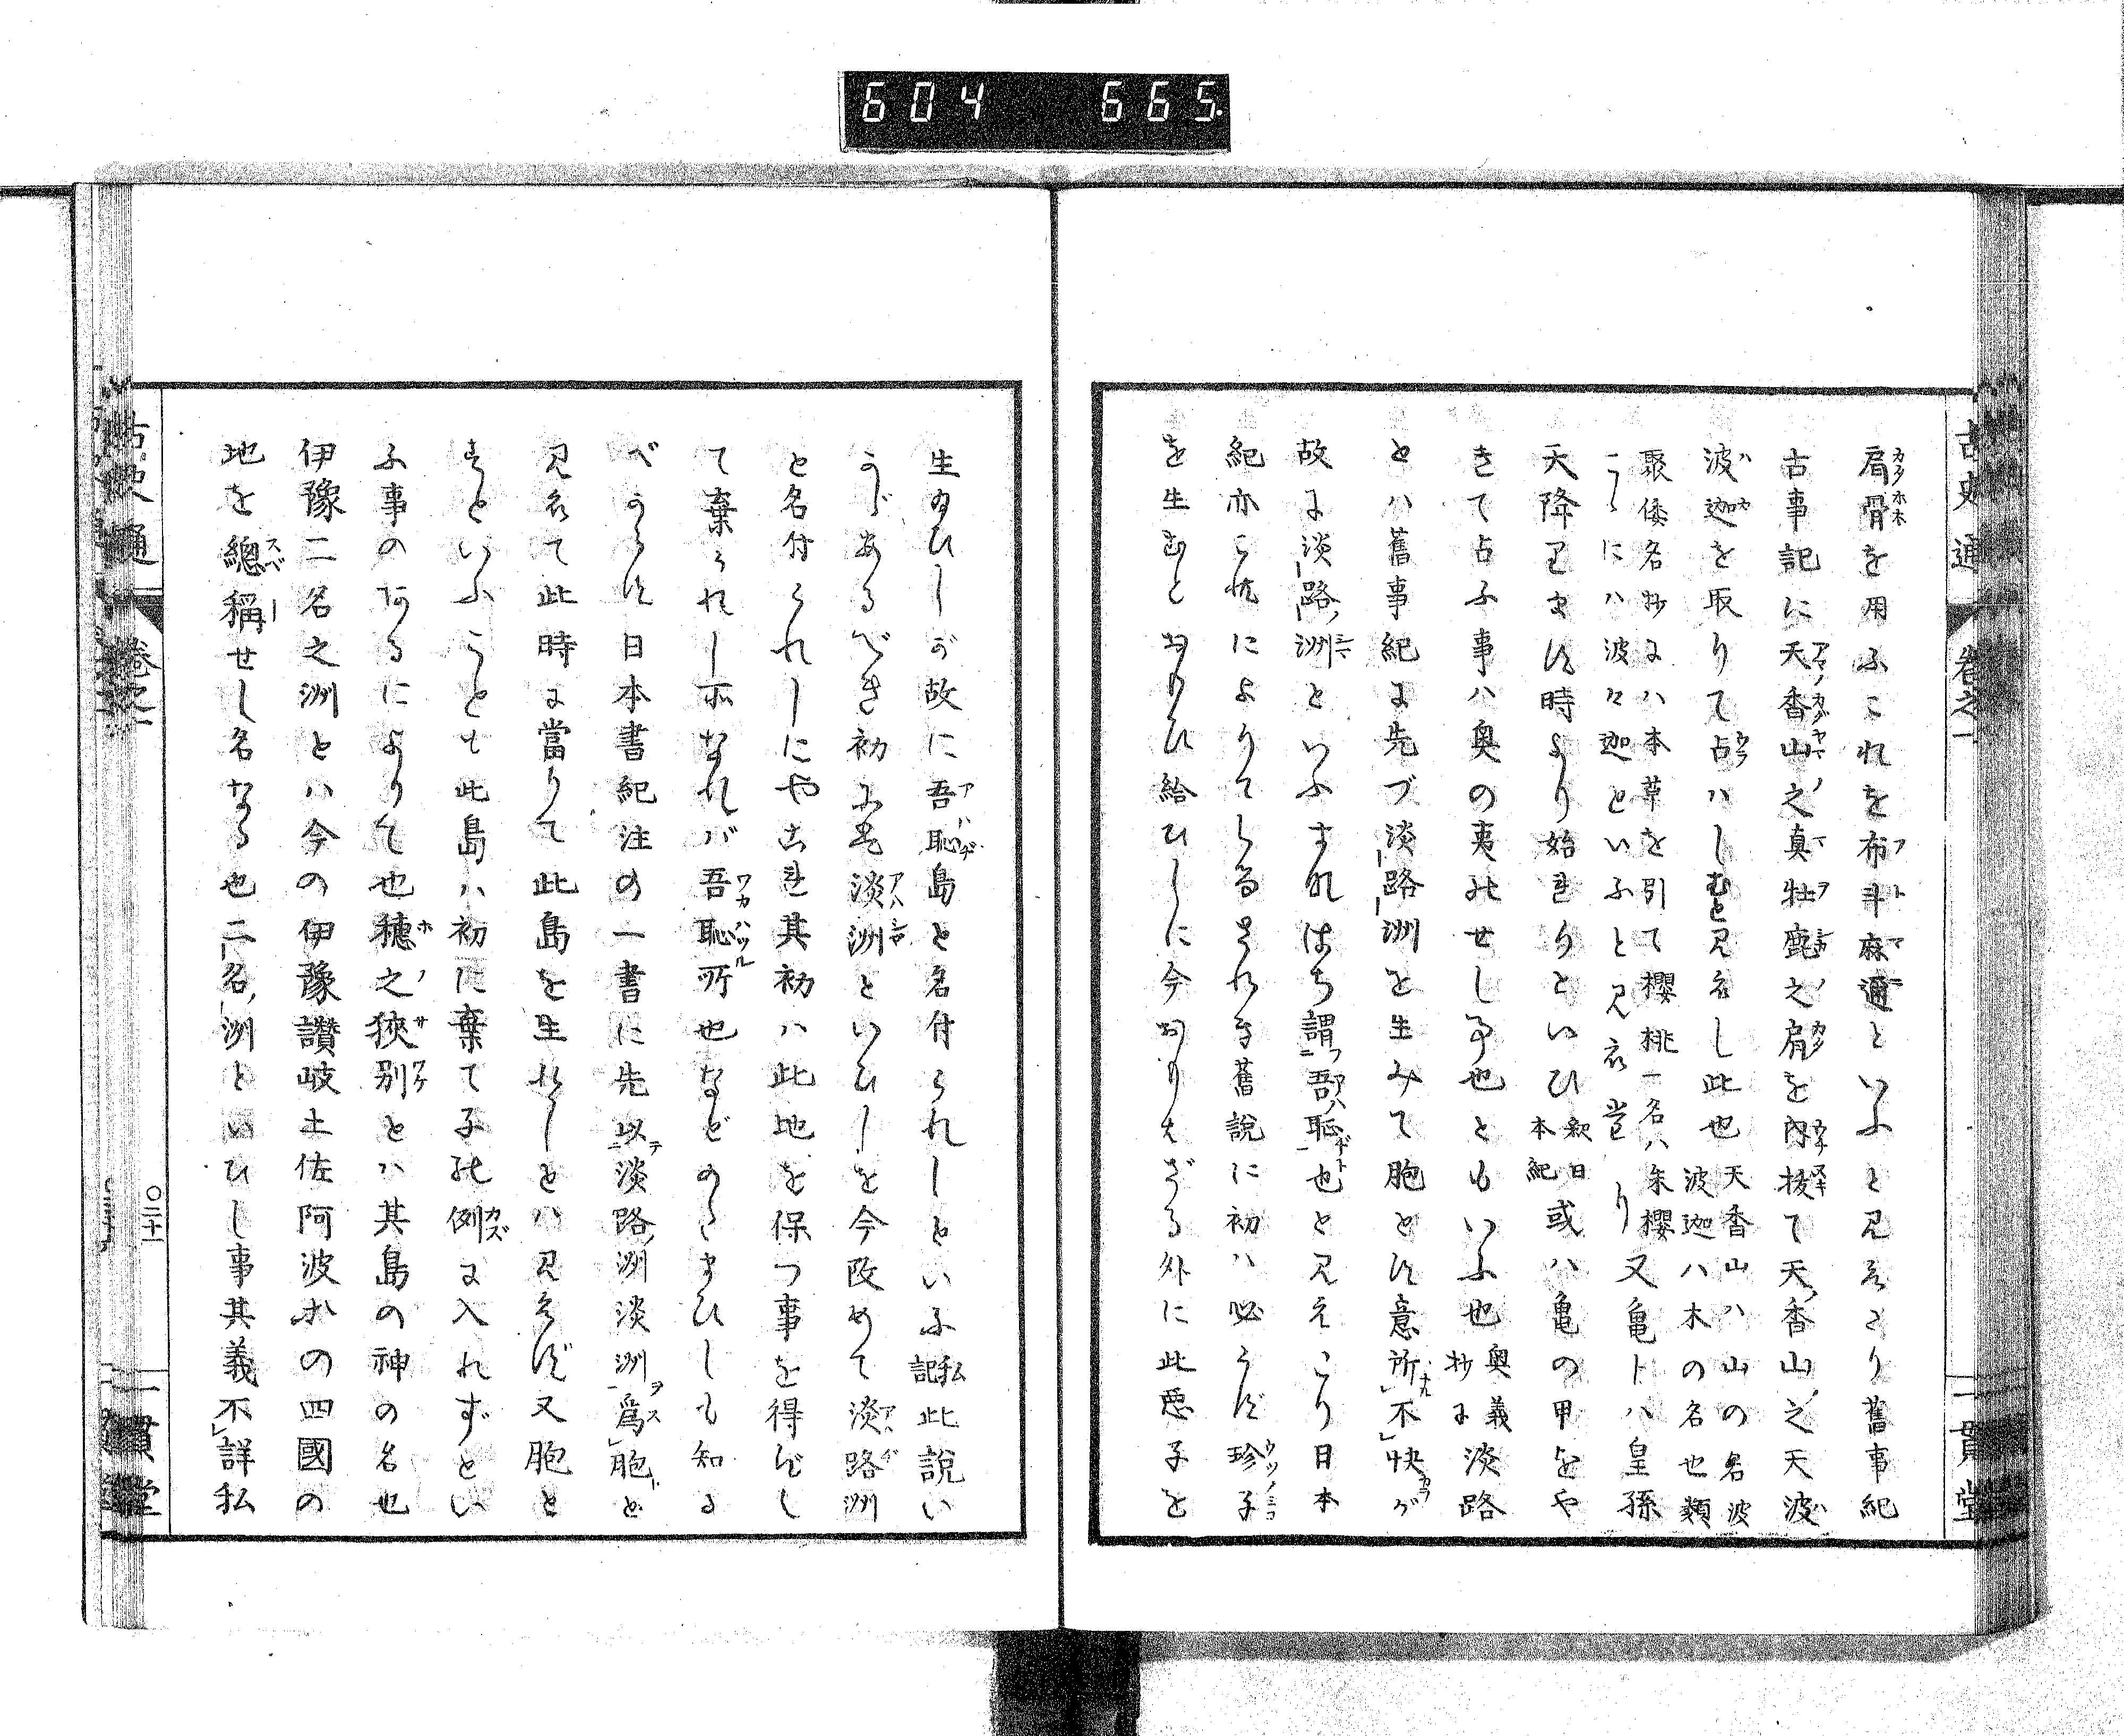 604 665
古史通 卷之一 一貫堂
肩骨を用ふこれを布斗麻邇といふと見えたり舊事紀
古事記に天香山之真牡鹿之肩を内拔て天香山之天波
波迦を取りて占ハしむと見えし此也天香山ハ山の名波波迦ハ木の名也類
聚倭名抄にハ本草を引て櫻桃一名ハ朱櫻
こゝにハ波々迦といふと見え
たり又亀卜ハ皇孫
天降ります時より始れりといひ釈日本紀或ハ亀の甲をや
きて占ふ事ハ奥の夷のせし事也ともいふ也奥義抄に淡路
とハ舊事紀に先づ淡路洲を生みて胞とす意所不快
故に淡路洲といふすなはち謂吾恥也と見えたり日本
紀亦これによりてしるされき舊説に初ハ必らず珍子
を生むとおもひ給ひしに今おもはざる外に此悪子を
生給ひしが故に吾恥島と名付られしといふ私記此説い
かゞあるべき初には淡洲といひしを今改めて淡路洲
と名付られしにや古き其初ハ此地を保つ事を得ずし
て棄られし所なれバ吾恥所也などのたまひしも知る
べからず日本書紀注の一書に先以淡路洲淡洲爲胞と
見えて此時に當りて此島を生れしとハ見えず又胞と
すといふことも此島ハ初に棄て子の例に入れずとい
ふ事のあるによりて也穂之狹別とハ其島の神の名也
伊豫二名之洲とハ今の伊豫讃岐土佐阿波等の四國の
地を總稱せし名なる也二名洲といひし事其義不詳私
古史通 卷之一 〇二十一 一貫堂